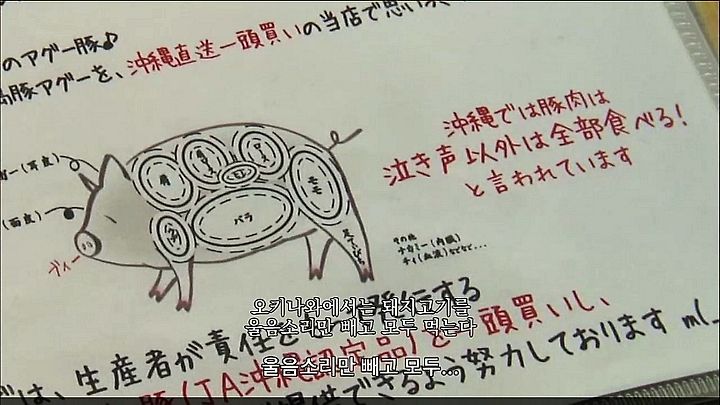 のアグー豚♪
豚アグーを、沖縄直送一頭買いの当店で思い
沖縄では豚肉は
泣き声以外は全部食べる!
と言われています
ガー(耳皮)
(面皮)
ブィー
肩
ロース
モモ
バラ
足てびち
その他
ナカミー(内臓)
チィ(血液)などなど...
する
は、生産者が責任を
豚(JA沖縄認定品)を一頭買いし、
できるよう努力しております m(_
오키나와에서는 돼지고기를
울음소리만 빼고 모두 먹는다
울음소리만 빼고 모두...